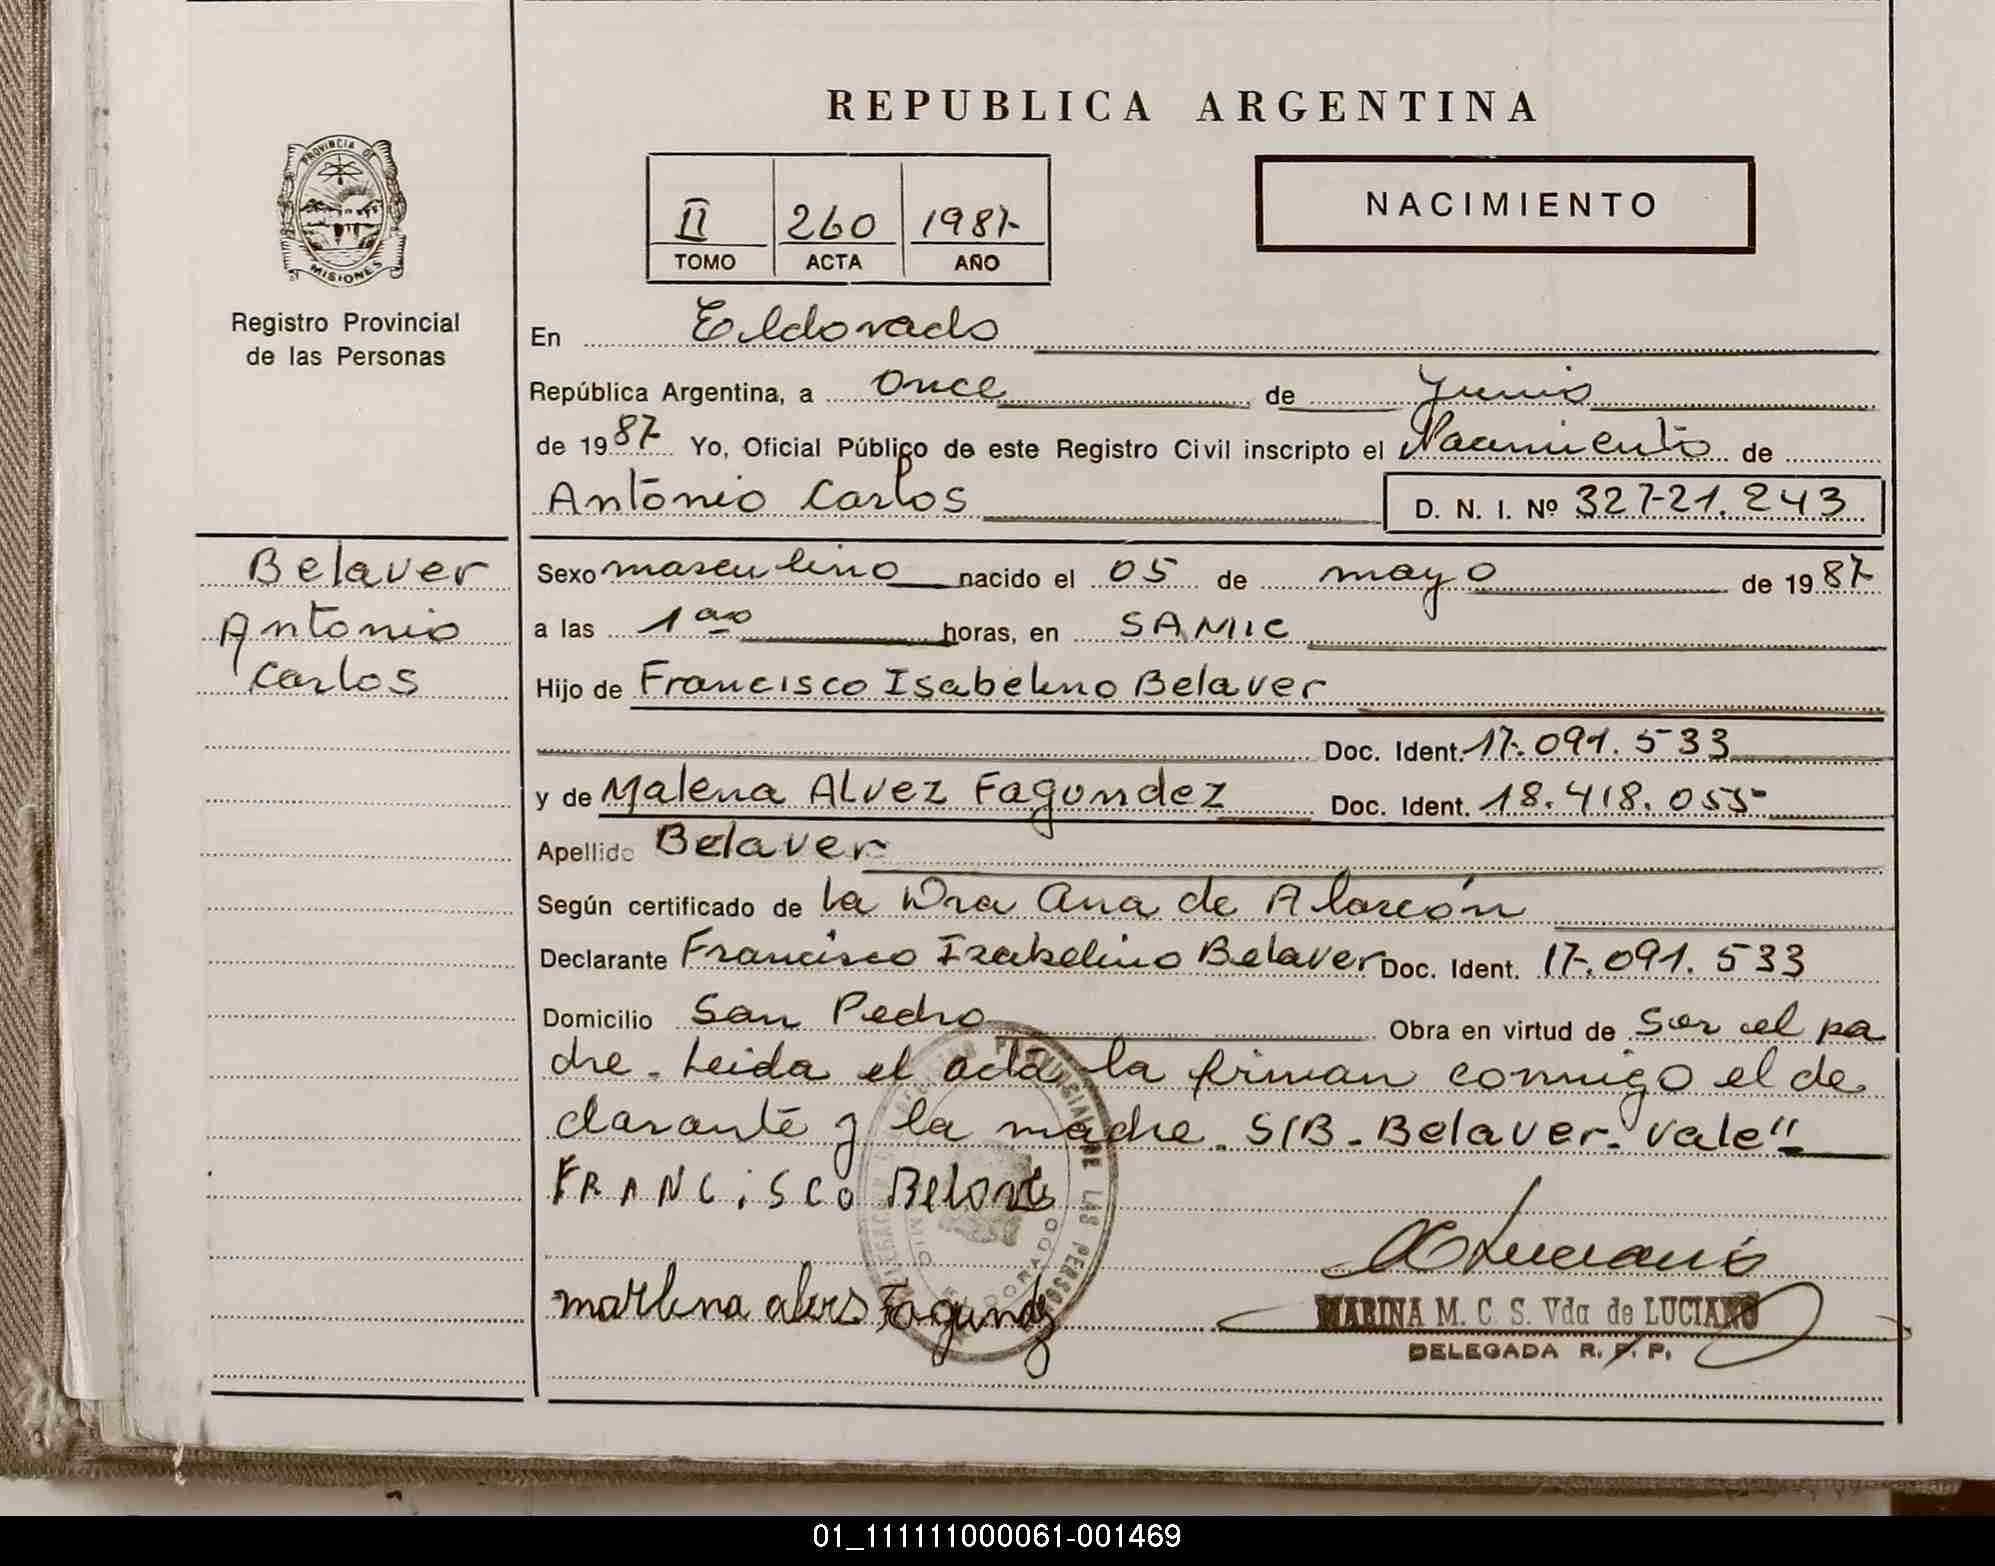 REPUBLICA ARGENTINA
PROVINCIA DE
MISIONES
Registro Provincial
de las Personas
II 260 1987
TOMO ACTA AÑO
NACIMIENTO
En Eldorado
República Argentina, a once de Junio
de 1987 Yo, Oficial Público de este Registro Civil inscripto el Nacimiento de
Antonio Carlos D. N. I. Nº 32721.243
Belaver
Antonio
Carlos
Sexo masculino nacido el 05 de mayo de 1987
a las 1 horas, en SAMIC
Hijo de Francisco Isabelino Belaver
Doc. Ident. 17.091.533
y de Malena Alvez Fagundez Doc. Ident. 18.418.055
Apellido Belaver
Según certificado de la Dra Ana de Alarcón
Declarante Francisco Izabelino Belaver Doc. Ident. 17.091.533
Domicilio San Pedro Obra en virtud de Ser el pa
dre. Leida el acta la firman conmigo el de
clarante y la madre. S/B-Belaver-Vale"
FRANCiSCO
marlena Fagundz
MARINA M. C. S. Vda de LUCIANO
DELEGADA R. P. P.
01_111111000061-001469